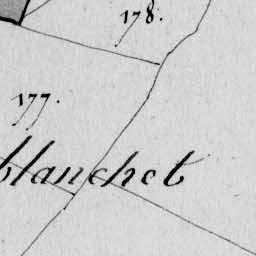 178.
177.
blanchet